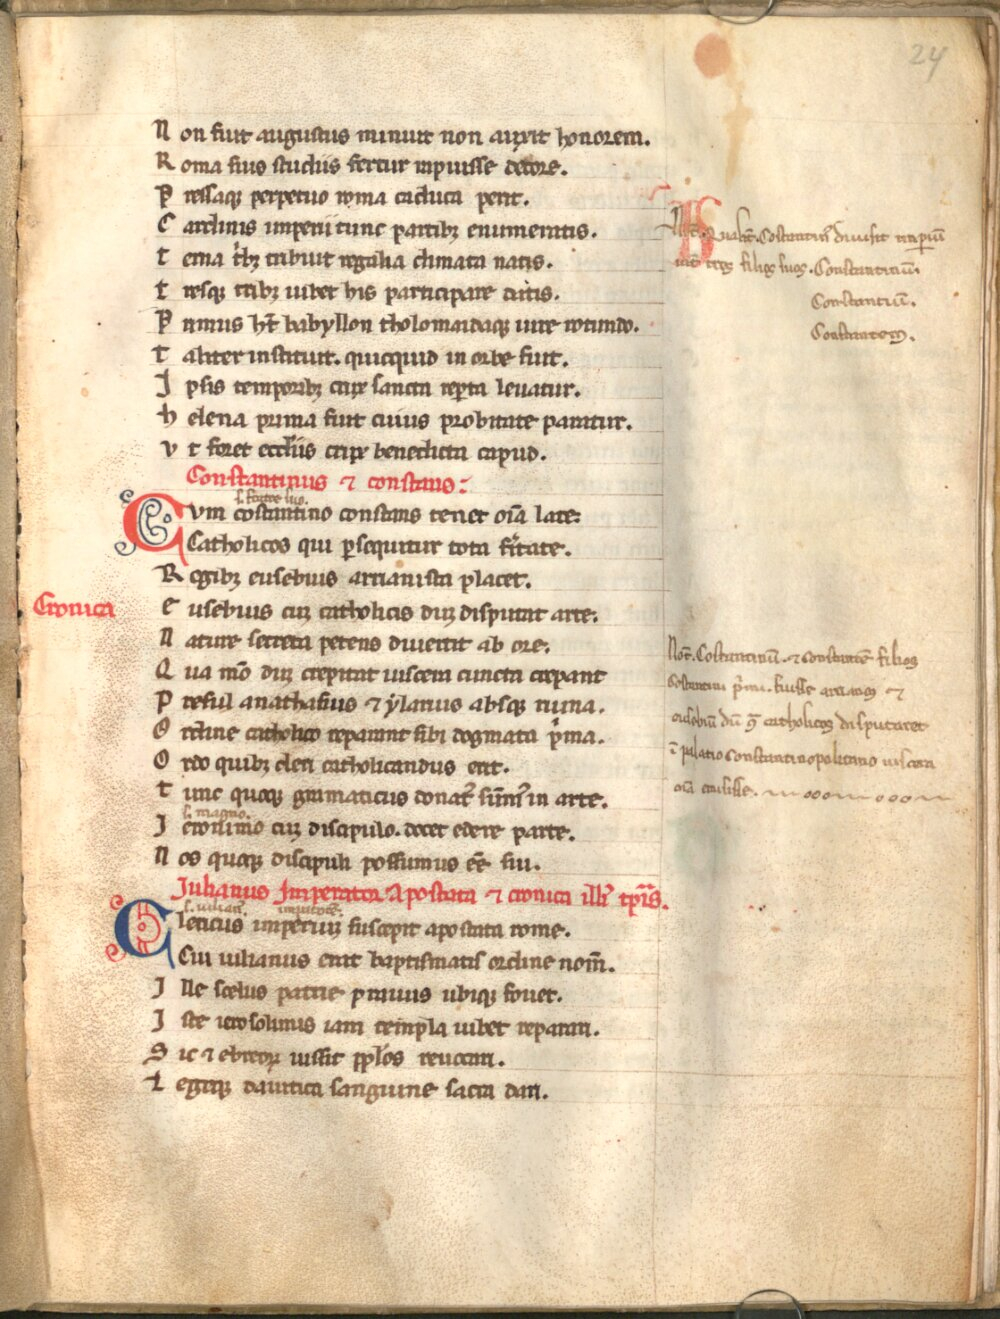 24
Non fuit augustus minuit non auxit honorem.
Roma suis studiis fertur inpuisse decore.
Pressaq perpetuo roma caduca perit.
Cardinis imperii tunc partibꝫ enumeratis.
terna tribꝫ tribuit regalia climata natis.
tresq tribꝫ iubet his participare cunctis.
Primus ht babyllon tholomaidaq iure rotundo.
Taliter instituit. quicquid in orbe fuit.
Ipsis temporibꝫ crux sancta repta levatur.
helena prima fuit cuius probitate paratur.
vt foret eccliis crux benedicta capud.
Constantinus ⁊ constans:
s. fratre suo.
Cvm costantino constans tenet oia late:
Catholicos qui psequitur tota feritate.
Regibꝫ eusebius arrianista placet.
eusebius cum catholicis dum disputat arte:
Cronica
Nature secreta petens divertit ab ore.
Qua mo dum crepitat viscera cuncta crepant
Presul anathasius ⁊ ylarius absq ruina.
Ordine catholico reparant sibi dogmata pma.
Ordo quibꝫ cleri catholicandus erit.
tunc quoq gramaticus donat sumus in arte.
s. magno.
Ieronimo cum discipulo. docet edere parte.
Nos quoq discipuli possumus ee sui.
Iulianus Imperator Apostata ⁊ cronica illi tpris.
s. iulian. imperatore.
Clericus imperium suscepit apostata rome.
Cui iulianus erat baptismatis ordine nom.
Ille scelus patrie primus ubiq fovet.
Iste ierosolimis iam templa iubet reparari.
Sic ⁊ ebreorum iussit pplos revocari.
Legeq davitica sanguine sacra dari.
Not. Qualit. Costantin divisit imperium
int tres filios suos. Constantinum.
Constantium.
Constantem.
Not. Costantinum. ⁊ Constante filios
Costantini primi. fuisse arianos ⁊
eusebiu du cum catholicos disputaret
i palatio constantinopolitano viscera
oia emisisse.